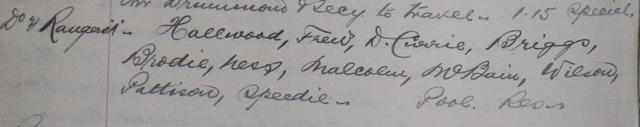 Mr Drummond Secy to travel - 1.15 special.
Do v Rangers - Hallwood, Frew, D. Currie, Briggs,
Brodie, Ness, Malcolm, McBain, Wilson,
Pattison, Speedie - Pool. Res